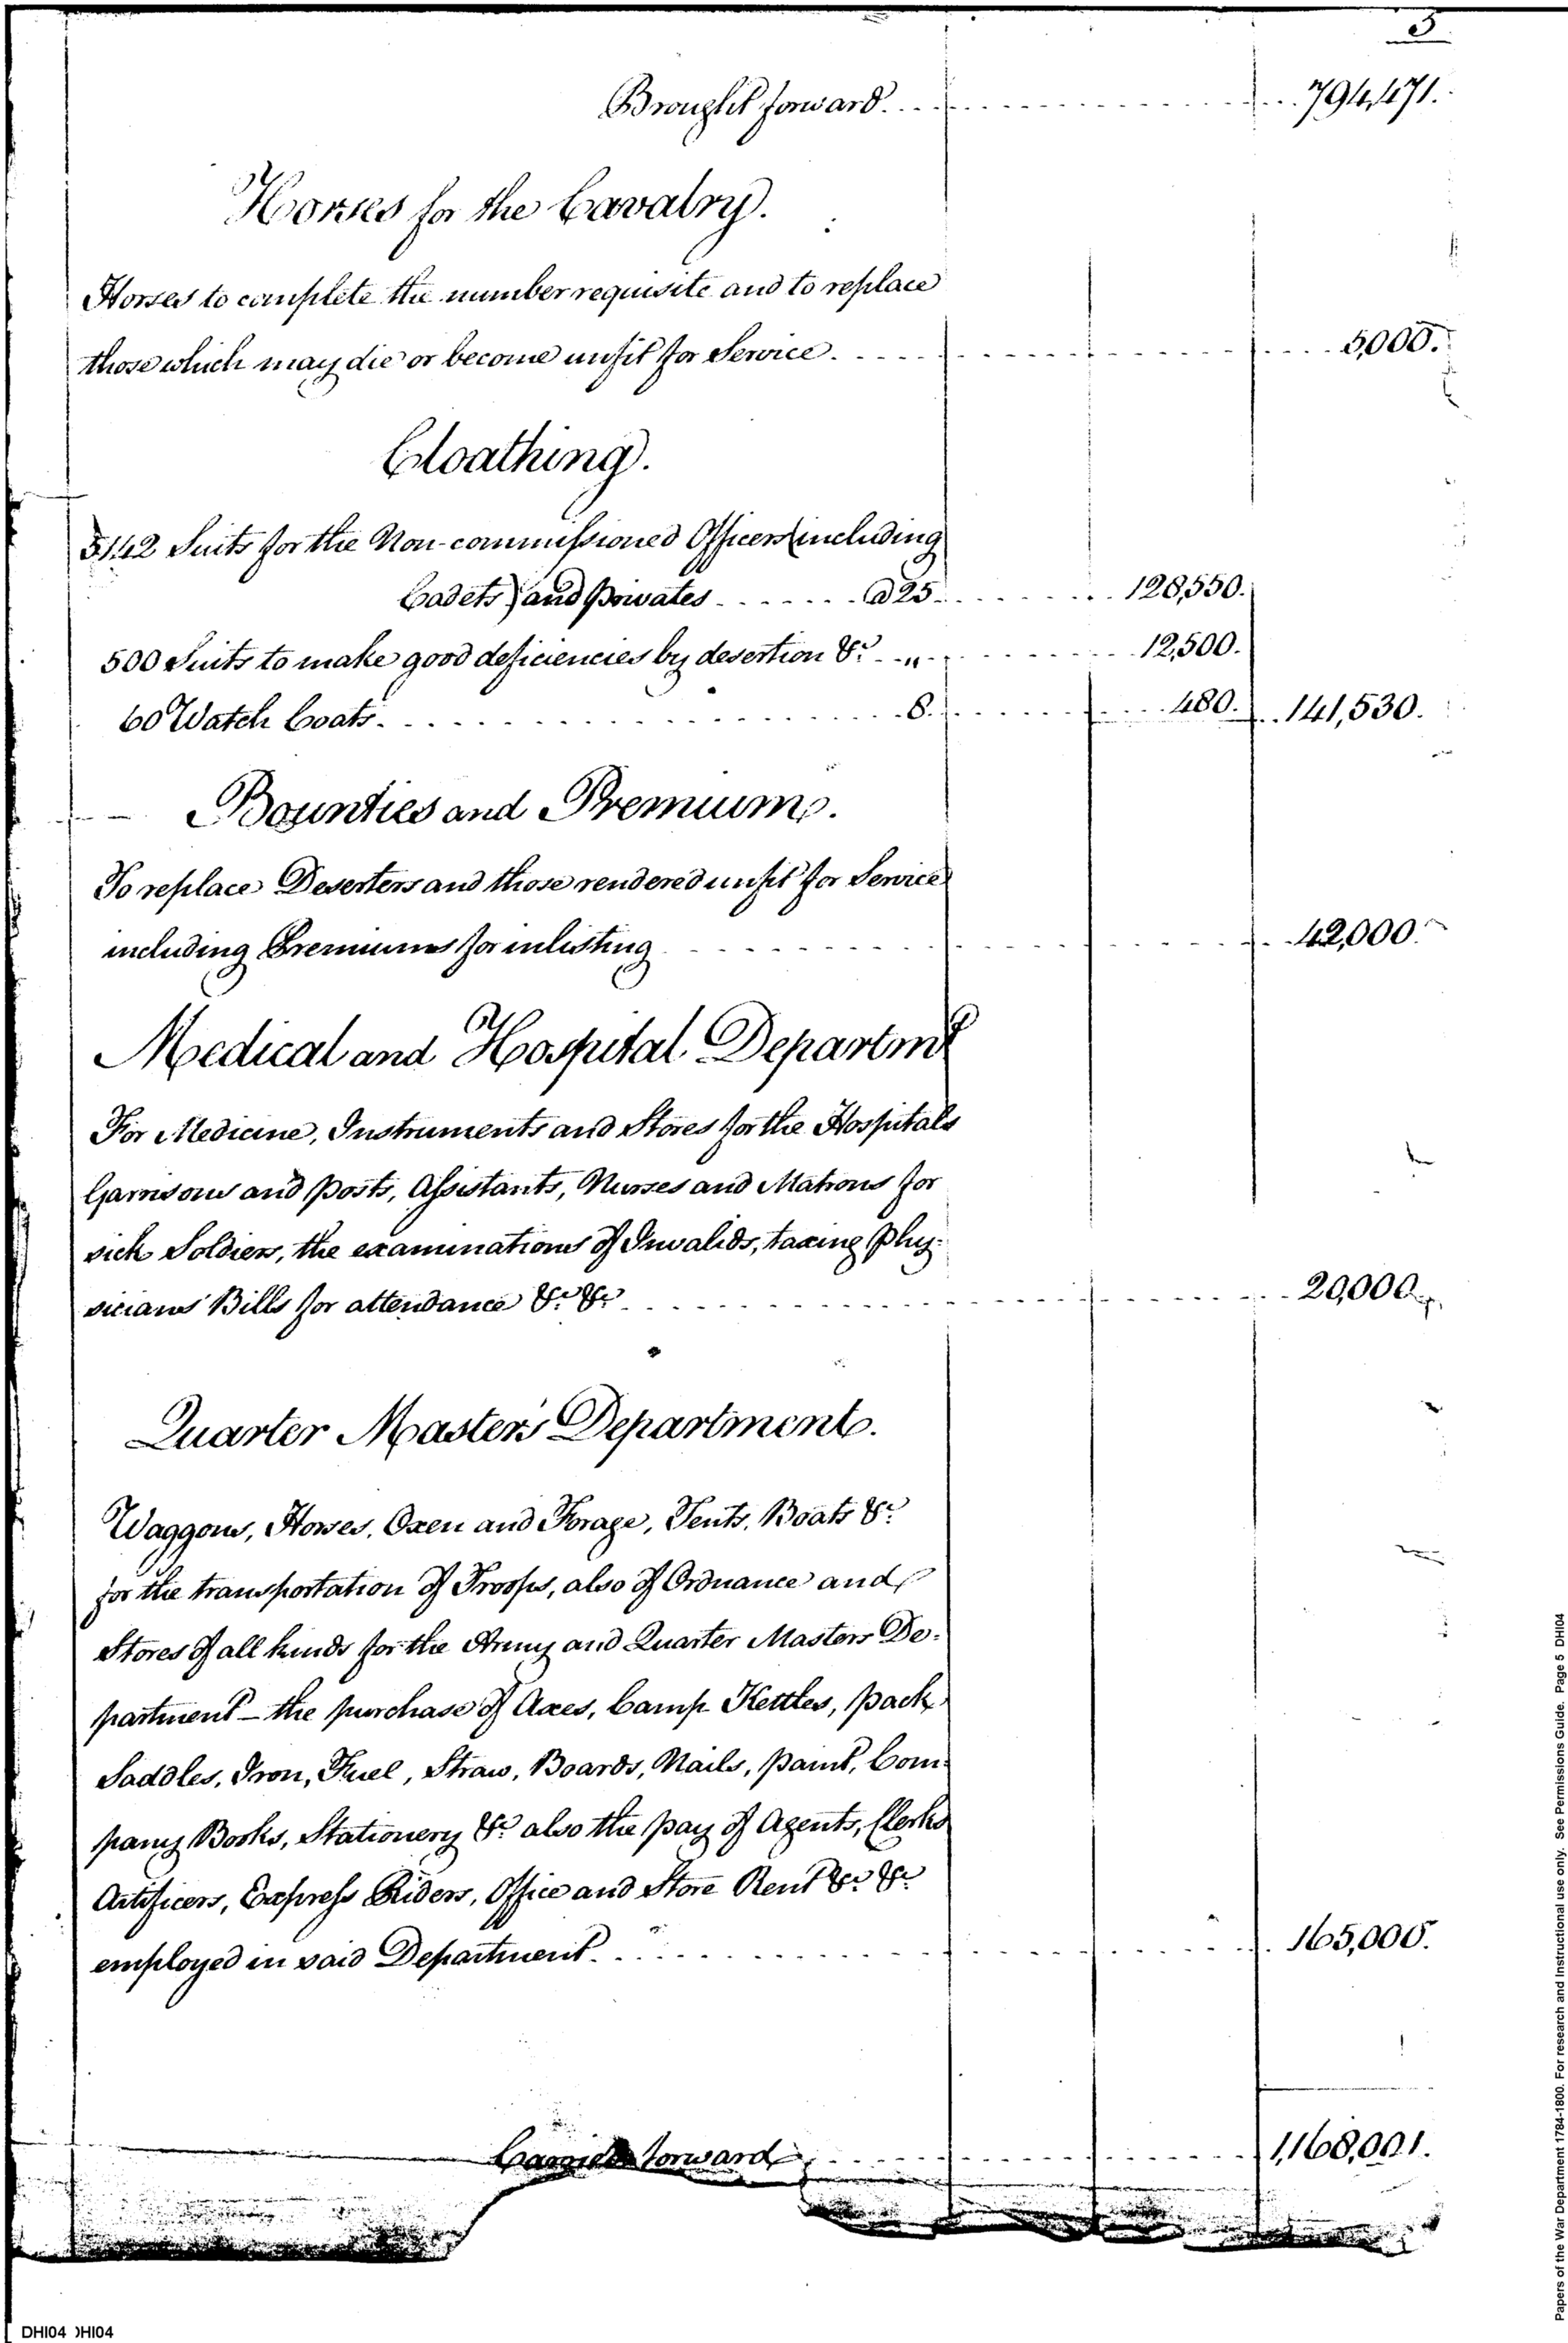 5
Brought forward 794,471.
Horses for the Cavalry.
Horses to complete the number requisite and to replace
those which may die or become unfit for Service 5,000.
Cloathing.
5142 Suits for the Non-commissioned Officers (including
Cadets) and privates @ 25 128,550.
500 Suits to make good deficiencies by desertion &c. " 12,500.
60 Watch Coats 8. 480. 141,530.
Bounties and Premiums.
To replace Deserters and those rendered unfit for Service
including Premiums for inlisting 42,000.
Medical and Hospital Departmt
For Medicine, Instruments and Stores for the Hospitals
Garrisons and posts, Assistants, Nurses and Matrons for
sick Soldiers, the examinations of Invalids, taxing Phy-
sicians' Bills for attendance &c. &c. 20,000.
Quarter Master's Department.
Waggons, Horses, Oxen and Forage, Tents, Boats &c.
for the transportation of Troops, also of Ordnance and
Stores of all kinds for the Army and Quarter Masters De-
partment - the purchase of Axes, Camp Kettles, pack
Saddles, Iron, Fuel, Straw, Boards, Nails, paint, Com-
pany Books, Stationery &c. also the pay of Agents, Clerks
Artificers, Express Riders, Office and Store Rent &c. &c.
employed in said Department 165,000.
Carried forward 1,168,001.
Papers of the War Department 1784-1800. For research and Instructional use only. See Permissions Guide. Page 5 DHI04
DHI04 DHI04